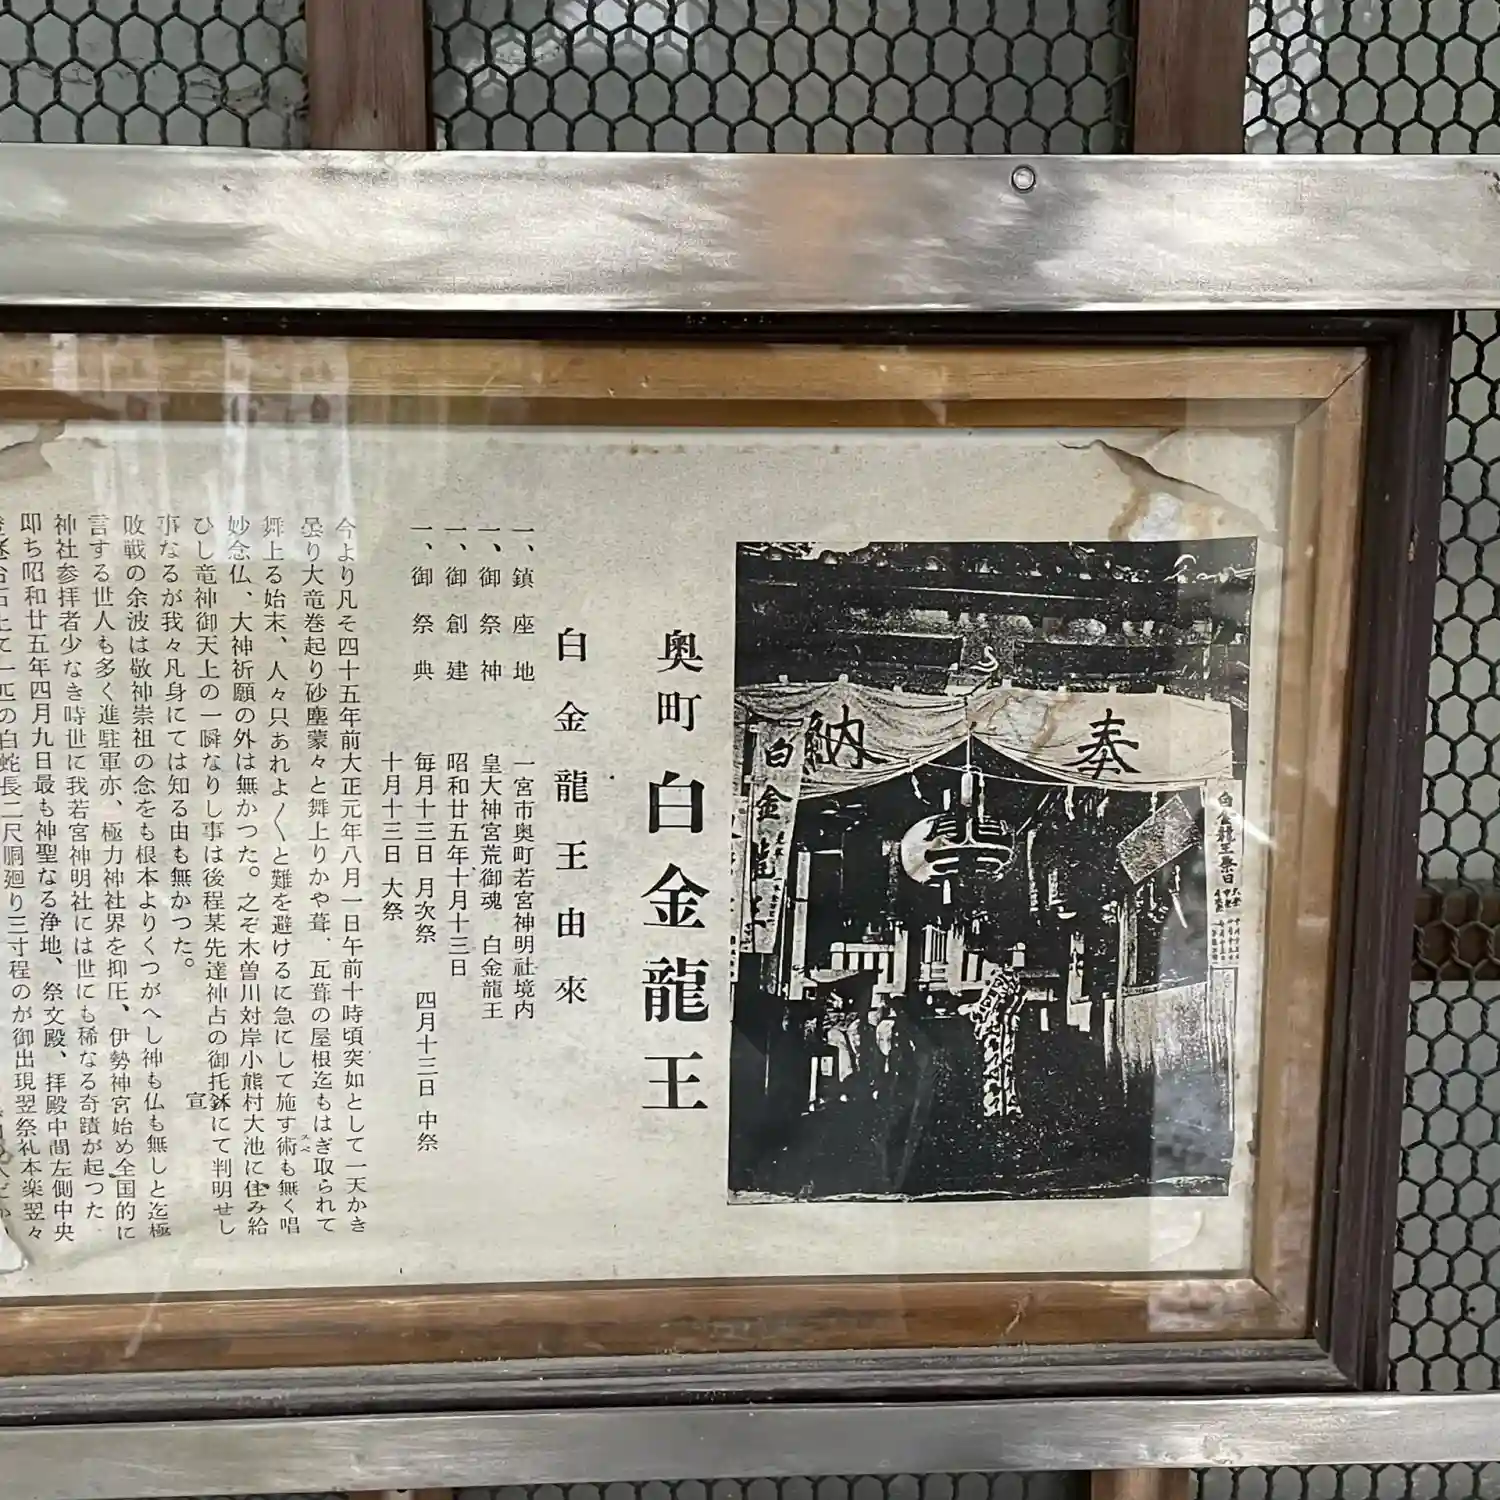 奉納
白金龍王
奥町 白金龍王
白金龍王由來
一、鎮座地 一宮市奥町若宮神明社境内
一、御祭神 皇大神宮荒御魂 白金龍王
一、御創建 昭和廿五年十月十三日
一、御祭典 毎月十三日 月次祭 四月十三日 中祭
十月十三日 大祭
今より凡そ四十五年前大正元年八月一日午前十時頃突如として一天かき
曇り大竜巻起り砂塵蒙々と舞上りかや葺、瓦葺の屋根迄もはぎ取られて
舞上る始末、人々只あれよ〱と難を避けるに急にして施す術も無く唱
妙念仏、大神祈願の外は無かつた。之ぞ木曽川対岸小熊村大池に住み給
ひし竜神御天上の一瞬なりし事は後程某先達神占の御托宣にて判明せし
事なるが我々凡身にては知る由も無かつた。
敗戦の余波は敬神崇祖の念をも根本よりくつがへし神も仏も無しと迄極
言する世人も多く進駐軍亦、極力神社界を抑圧、伊勢神宮始め全国的に
神社参拝者少なき時世に我若宮神明社には世にも稀なる奇蹟が起つた
即ち昭和廿五年四月九日最も神聖なる浄地、祭文殿、拝殿中間左側中央
一匹の白蛇長二尺胴廻り三寸程のが御出現翌祭礼本楽翌々